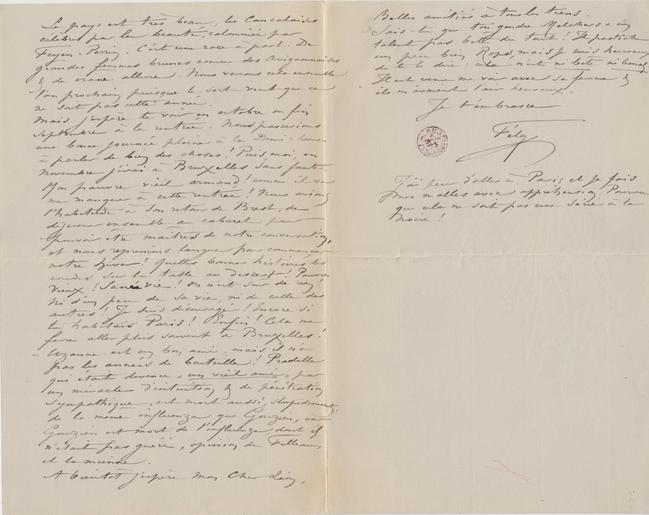 Le pays est très beau, les Cancalaises
célèbres par la beauté, calomniée par
Feyen-Perrin. C'est une race à part. De
grandes femmes brunes comme des Avignonnaises
& de vraie allure. Nous verrons cela ensemble
l'an prochain puisque le sort veut que ce
ne soit pas cette année.
Mais j'espère te voir en octobre ou fin
septembre à la rentrée. Nous passerions
une bonne journée pleine à la Demi-Lune
à parler de bien des choses! Puis, moi, en
Novembre j'irai à Bruxelles sans faute.
Mon pauvre vieil Armand! comme il va
me manquer à cette rentrée! Nous avions
l'habitude à son retour de Brest, de
déjeuner ensemble au cabaret pour
pouvoir être maîtres de notre conversation,
et nous reprenions langue pour commencer
notre hiver! Quelles bonnes histoires les
coudes sur la table au Dessert! Pauvre
vieux! Sa vie! On n'est sur de rien!
Ni d'un peu de sa vie, ni de celle des
autres! Je suis découragé! Encore si
tu habitais Paris! Enfin! Cela me
fera aller plus souvent à Bruxelles!
Uzanne est un bon ami, mais il n'a
pas les années de bouteille! Pradelle
qui était devenu, un vieil ami, par
un miracle d'intuition & de pénétration
sympathique, est mort aussi, stupidement,
de la même influenza que Gouzien, car
Gouzien est mort de l'influenza dont il
n'était pas guéri, opinion de Filleau,
et la mienne.
A bientôt j'espère Mon Cher Léon,
Belles amitiés à tous les tiens.
Sais-tu que ton gendre Melchers a un
talent pas bête du tout! Il pastiche
un peu bien Rops, mais je suis heureux
de te le dire: cela n'est ni bête ni banal
Il est venu me voir avec sa femme &
ils m'avaient l'air heureux.
Je t'embrasse
Fély
J'ai peur d'aller à Paris, et je fais
mes malles avec appréhension. Pourvu
que cela ne soit pas une série à la
noire!